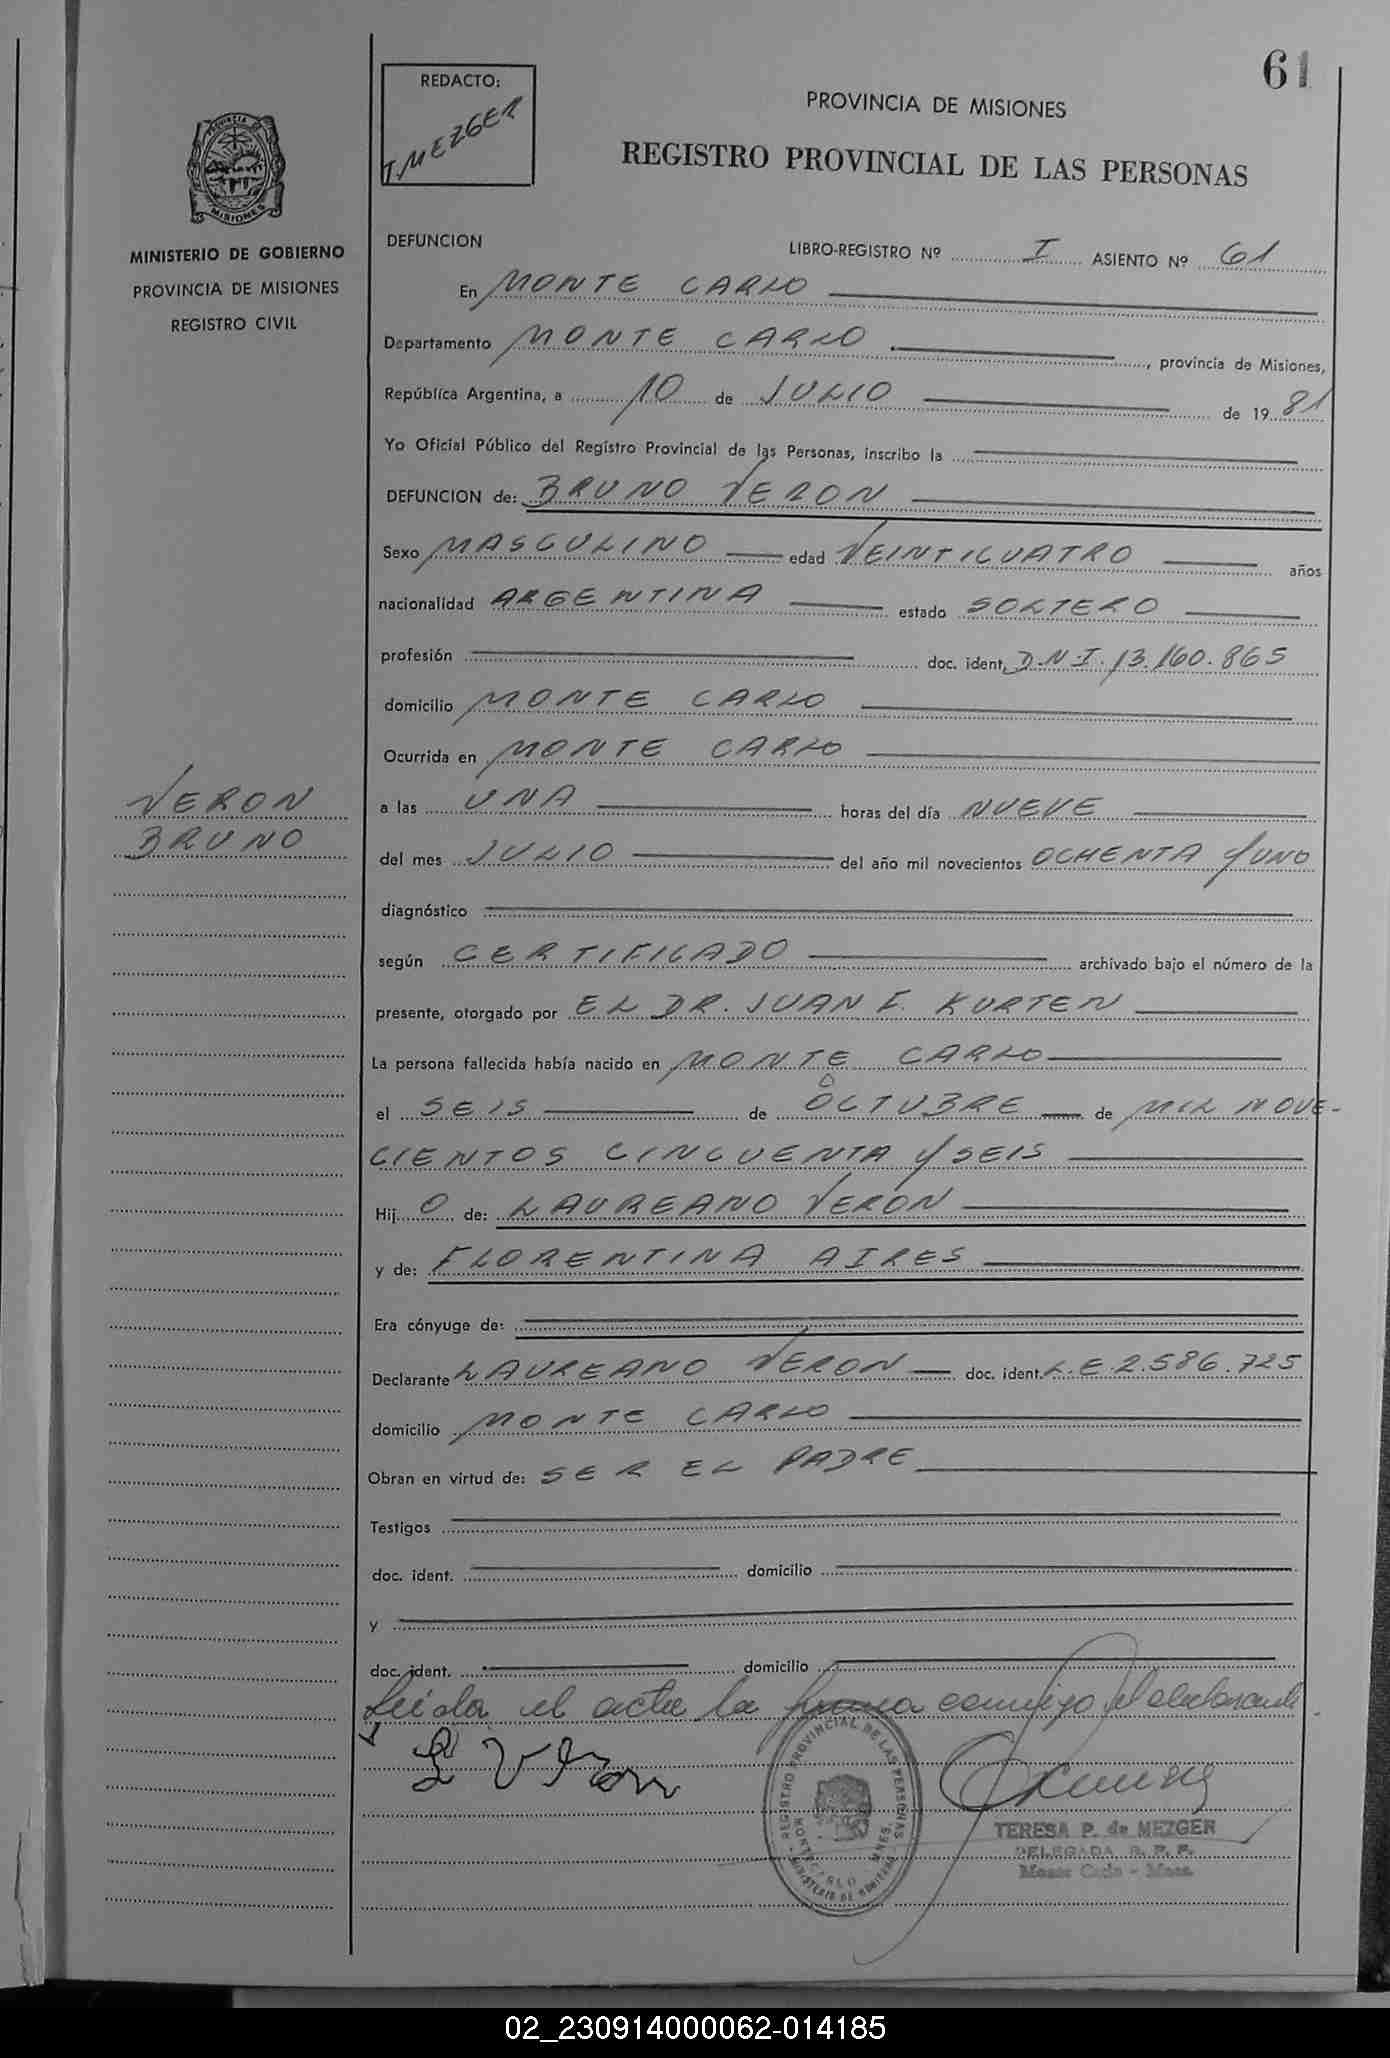 61
REDACTO:
T. MEZGER
PROVINCIA DE MISIONES
REGISTRO PROVINCIAL DE LAS PERSONAS
PROVINCIA DE
MISIONES
MINISTERIO DE GOBIERNO
PROVINCIA DE MISIONES
REGISTRO CIVIL
VERON
BRUNO
DEFUNCION
LIBRO-REGISTRO Nº I ASIENTO Nº 61
En MONTE CARLO
Departamento MONTE CARLO, provincia de Misiones,
República Argentina, a 10 de JULIO de 1981
Yo Oficial Público del Registro Provincial de las Personas, inscribo la
DEFUNCION de: BRUNO VERON
Sexo MASCULINO edad VEINTICUATRO años
nacionalidad ARGENTINA estado SOLTERO
profesión doc. ident, D.N.I. 13.160.865
domicilio MONTE CARLO
Ocurrida en MONTE CARLO
a las UNA horas del día NUEVE
del mes JULIO del año mil novecientos OCHENTA Y UNO
diagnóstico
según CERTIFICADO archivado bajo el número de la
presente, otorgado por EL DR. JUAN F. KURTEN
La persona fallecida había nacido en MONTE CARLO
el SEIS de OCTUBRE de MIL NOVE-
CIENTOS CINCUENTA Y SEIS
Hij O de: LAUREANO VERON
y de: FLORENTINA AIRES
Era cónyuge de:
Declarante LAUREANO VERON doc. ident. L.E 2.586.725
domicilio MONTE CARLO
Obran en virtud de: SER EL PADRE
Testigos
doc. ident. domicilio
y
doc. ident. domicilio
Leida el acta la firma conmigo el declarante.
L Veron
REGISTRO PROVINCIAL DE LAS PERSONAS
MONTECARLO MNES.
MINISTERIO DE GOBIERNO
TERESA P. de MEZGER
DELEGADA R. P. P.
Monte Carlo - Mnes.
02_230914000062-014185